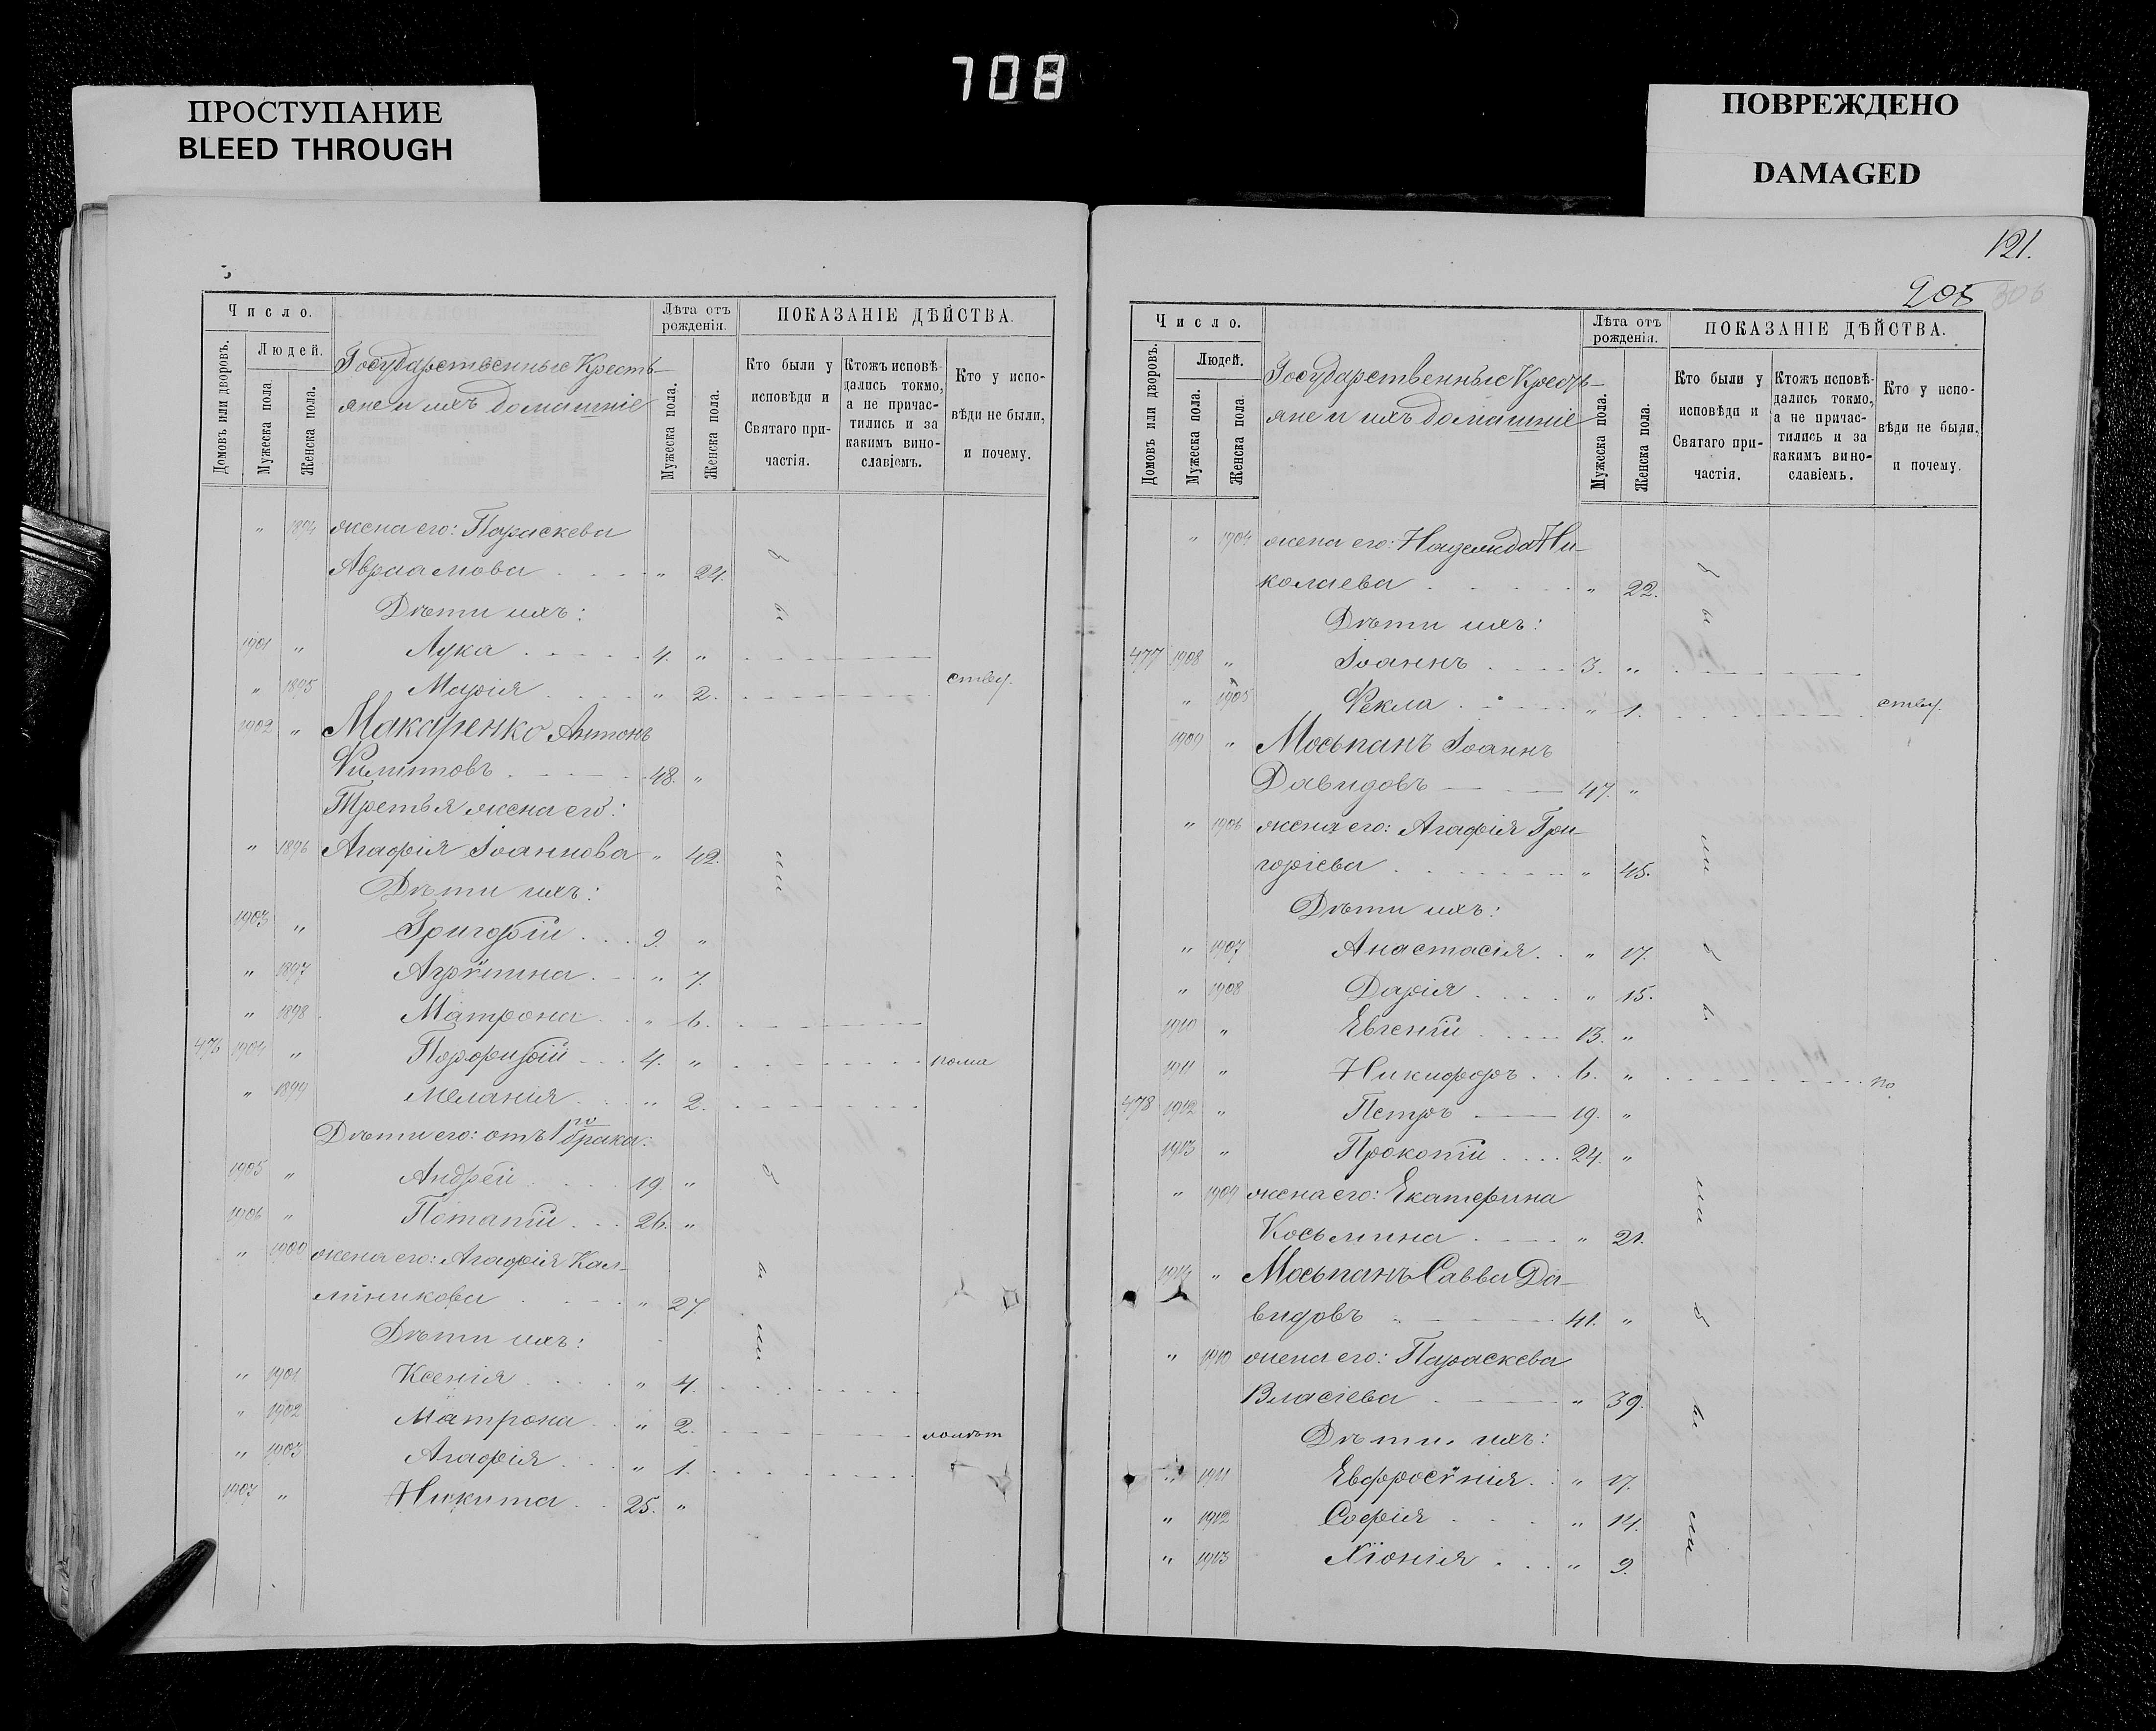 708
ПРОСТУПАНИЕ
BLEED THROUGH
ПОВРЕЖДЕНО
DAMAGED
Число.
Домовъ или дворовъ.
Людей.
Мужеска пола
Женска пола.
Государственные Кресть-
яне и ихъ домашніе
Лѣта отъ рожденія.
Мужеска пола.
Женска пола.
ПОКАЗАНІЕ ДѢЙСТВА.
Кто были у исповѣди и Святаго при-частія.
Ктожъ исповѣ-дались токмо, а не причас-тились и за какимъ вино-славіемъ.
Кто у испо-вѣди не были, и почему.
" 1894 жена его: Параскева
Авраамова " 24.
Дѣти ихъ:
1901 " Лука 4. "
" 1895 Марія " 2.
1902 " Макаренко Антонъ
Филипповъ 48. "
Третья жена его:
" 1896 Агафія Іоаннова " 42.
Дѣти ихъ:
1903 " Григорій 9. "
" 1897 Агрѵпина " 7.
" 1898 Матрона " 6.
476 1904 " Порфирій 4. "
" 1899 Меланія " 2.
Дѣти его: отъ 1го брака:
1905 " Андрей 19. "
1906 " Потапій 26. "
" 1900 жена его: Агафія Кал-
линикова " 27.
Дѣти ихъ:
" 1901 Ксенія " 4.
" 1902 Матрона " 2.
" 1903 Агафія " 1.
1907 " Никита 25. "
121.
205
306
Число.
Домовъ или дворовъ.
Людей.
Мужеска пола.
Женска пола.
Государственные Кресть-
яне и ихъ домашніе
Лѣта отъ рожденія.
Мужеска пола.
Женска пола.
ПОКАЗАНІЕ ДѢЙСТВА.
Кто были у исповѣди и Святаго при-частія.
Ктожъ исповѣ-дались токмо, а не причас-тились и за какимъ вино-славіемъ.
Кто у испо-вѣди не были, и почему.
" 1904 жена его: Надежда Ни-
колаева " 22.
Дѣти ихъ:
477 1908 " Іоаннъ 3. "
" 1905 Ѳекла " 1.
1909 " Мосьпанъ Іоаннъ
Давидовъ 47. "
" 1906 жена его: Агафія Гри-
горіева " 45.
Дѣти ихъ:
" 1907 Анастасія " 17.
" 1908 Дарія " 15.
1910 " Евгеній 13. "
1911 " Никифоръ 6. " по
478 1912 " Петръ 19. "
1913 " Прокопій 24. "
" 1909 жена его: Екатерина
Косьмина " 21.
1914 " Мосьпанъ Савва Да-
видовъ 41. "
" 1910 жена его: Параскева
Власіева " 39.
Дѣти ихъ:
" 1911 Евфросѵнія " 17.
" 1912 Софія " 14.
" 1913 Хіонія " 9.